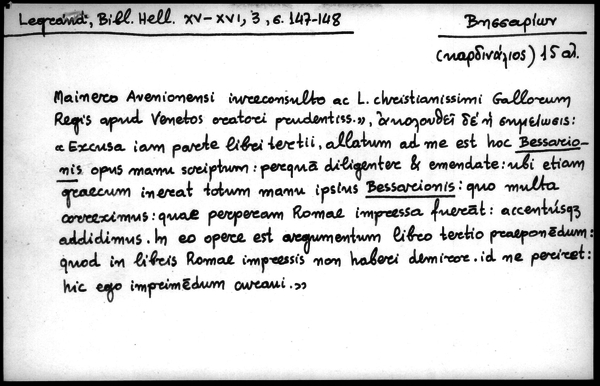 Legrand, Bibl. Hell. XV–XVI, 3, σ. 147-148
Βησσαρίων
(καρδινάλιος) 15 αἰ.
Mainero Avenionensi iureconsulto ac L. christianissimi Gallorum
Regis apud Venetos oratori prudentiss.», ἀκολουθεῖ δὲ ἡ σημείωσις:
«Excusa iam parte libri tertii, allatum ad me est hoc Bessario-
nis opus manu scriptum: perquā diligenter & emendate: ubi etiam
graecum inerat totum manu ipsius Bessarionis: quo multa
correximus: quae perperam Romae impressa fuerāt: accentúsqʒ
addidimus. In eo opere est argumentum libro tertio praeponēdum:
quod in libris Romae impressis non haberi demiror. id ne periret:
hic ego imprimēdum curaui.»